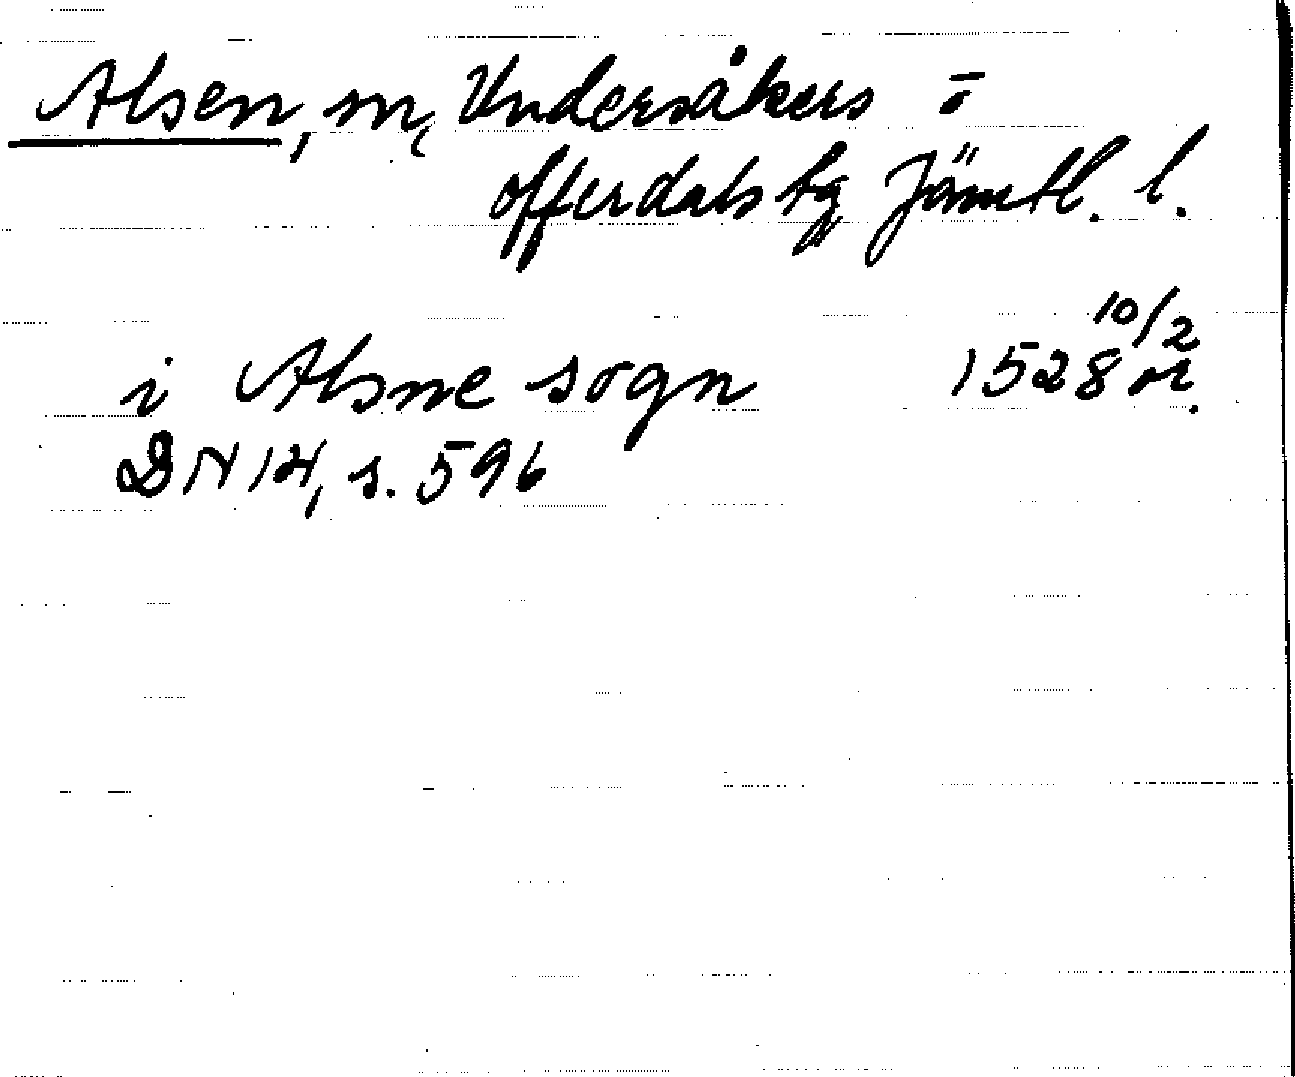 Alsen, sn, Undersåkers o
offerdals tg Jämtl. l.
i Alsne sogn 1528 10/2 or.
DN 14, s. 596